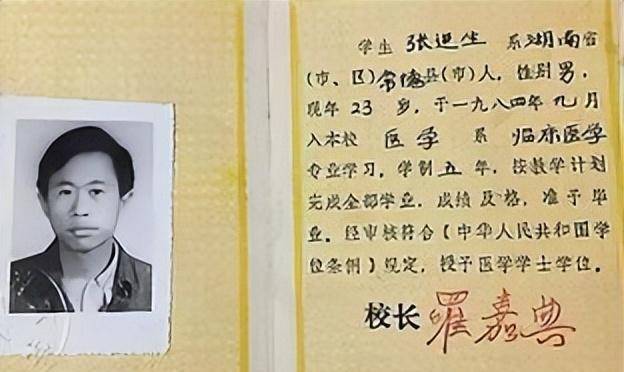 学生 系湖南省
(市、区)常德县(市)人，性别男，
现年23岁，于一九八四年九月
入本校 医学 系 临床医学
专业学习。学制五年，按教学计划
完成全部学业，成绩及格，准予毕
业。经审核符合《中华人民共和国学
位条例》规定，授予医学学士学位。
校长 罗嘉典